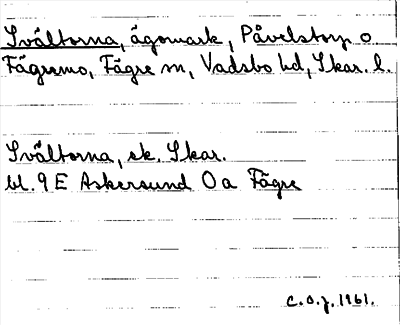 Svältorna, ägomark, Påvelstorp o
Fägremo, Fägre sn, Vadsbo hd, Skar. l.
Svältorna, ek. Skar.
bl. 9 E Askersund O a Fägre
C.O.J. 1961.